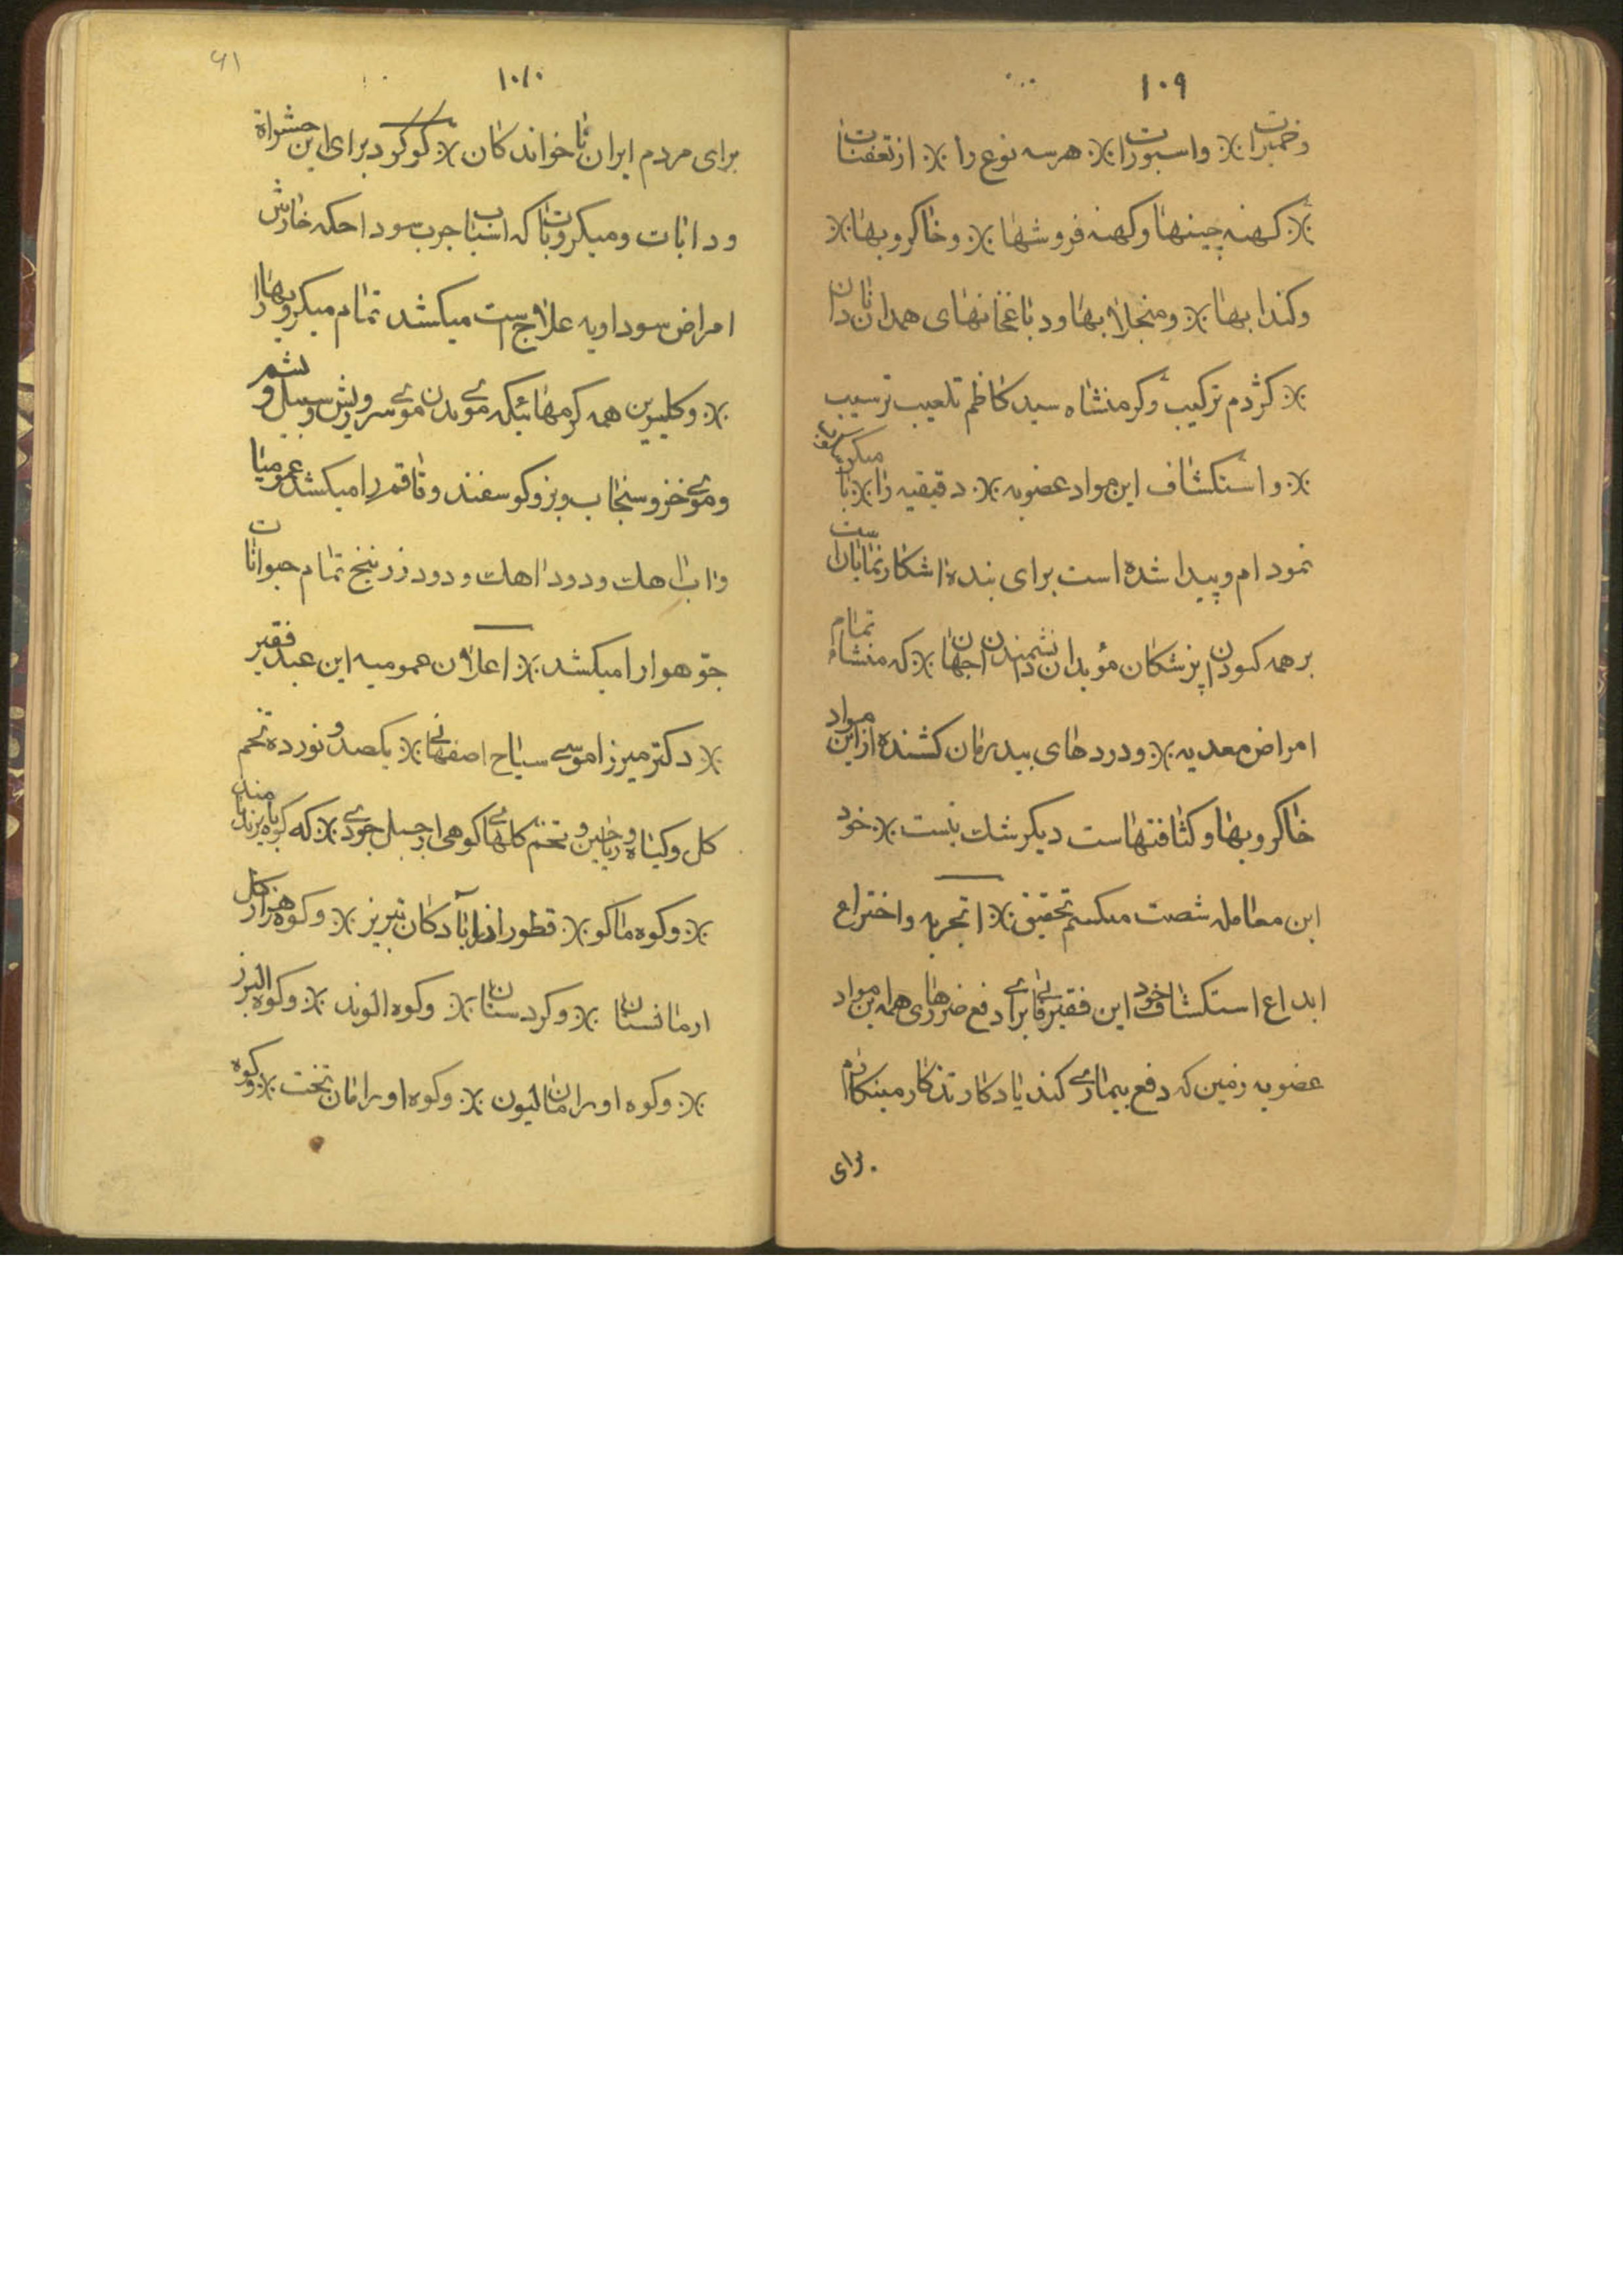 ۱۰۹
وخمیرات را ※ واسپورت را ※ هر سه نوع را ※ از تعفنات
※ کهنه چینها وکهنه فروشها ※ وخاکروبها ※
وکندابها ※ ومنجلابها ودباغخانهای همدان
※ کژدم ترکیب وکرمنشاه سید کاظم تلعیب ترسیب
※ واستکشاف این مواد عضویه ※ دقیقیه را ※ با
نمودام وپیدا شده است برای بنده اشکار نمایان
بر همه کسودن پزشکان مؤبدان دانشمندان جهان ※ که منشاء تمام
امراض معدیه ※ ودردهای بیدرمان کشنده از این مواد
خاکروبها وکثافتهاست دیکر شک نیست ※ خود
این معامله شصت میکنم تحقیق ※ تجربه واختراع
ابداع استکشاف خود این فقیر فانی برای دفع ضررهای همه این مواد
عضویه زمین که دفع بیماری کند یادکار تذکار مینکارم
برای
۶۱
۱۰۱۰
برای مردم ایران تا خوانندکان ※ کوکرد برای این حشراة
ودابات ومیکروبات که اسباب جرب سودا حکه خارش
امراض سوداویه علاج است میکشد تمام میکروبها را
※ وکلیسرین همه کرمهائیکه موی بدن موی سر وریش وسبیل و پشم
وموی خز وسنجاب وبز وکوسفند وقاقم را میکشد عمومیا
واب اهک ودود اهک ودود زرنیخ تمام حیوانات
جو هوا را میکشد ※ اعلان عمومیه این عبد فقیر
※ دکتر میرزا موسی سیاح اصفهانی ※ یکصد ونورده تخم
کل وکیاه وریاحین وتخم کلهای کوهی از جبل جودی ※ که کوه
※ وکوه ماکو ※ قطور اذربابادکان تبریز ※ وکوه هزار کل
ارمانستان ※ وکردستان ※ وکوه الوند ※ وکوه البرز
※ وکوه اورامان لیون ※ وکوه اورامان تخت ※ وکوه